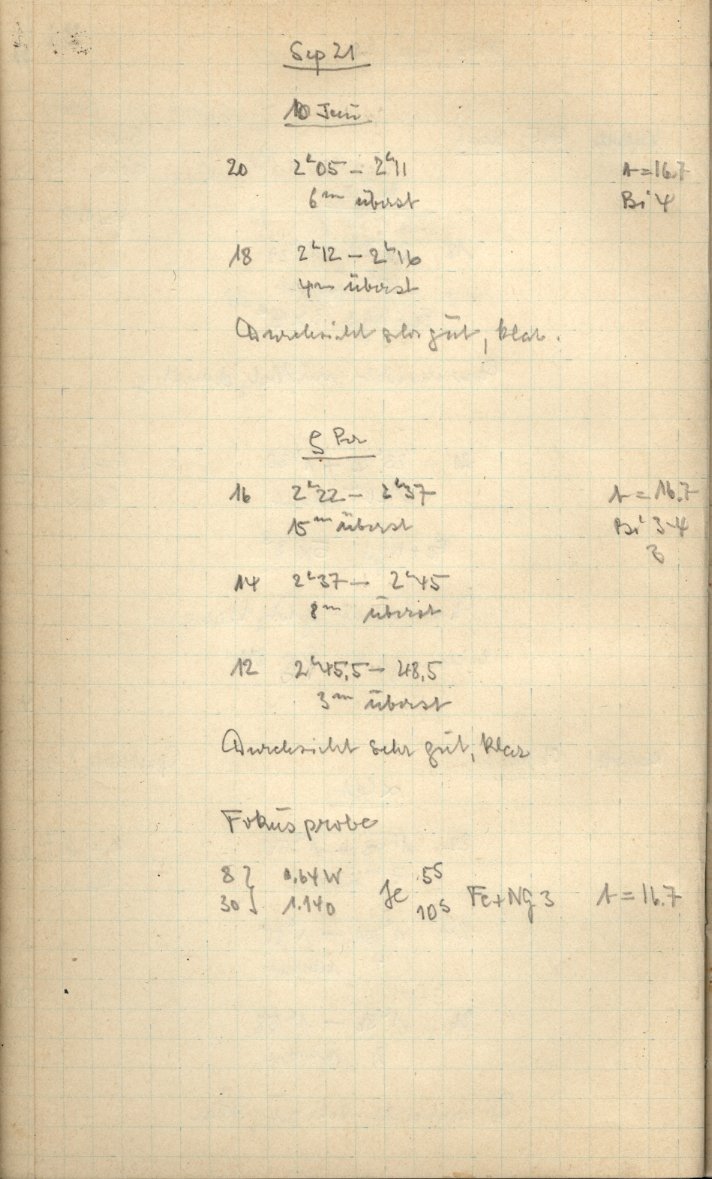 Sep 21
10
20 2ʰ05 – 2ʰ11 A = 16.7
6ᵐ überst Bi 4
18 2ʰ12 – 2ʰ16
4ᵐ überst
Durchsicht sehr gut, klar.
ζ Per
16 2ʰ22 – 2ʰ37 A = 16.7
15ᵐ überst Bi 3-4
3
14 2ʰ37 – 2ʰ45
8ᵐ überst
12 2ʰ45,5 – 48,5
3ᵐ überst
Durchsicht sehr gut, klar
Fokusprobe
8 } 0.64 W 5ˢ
30 } 1.140 10ˢ Fe+Ng 3 A = 16.7